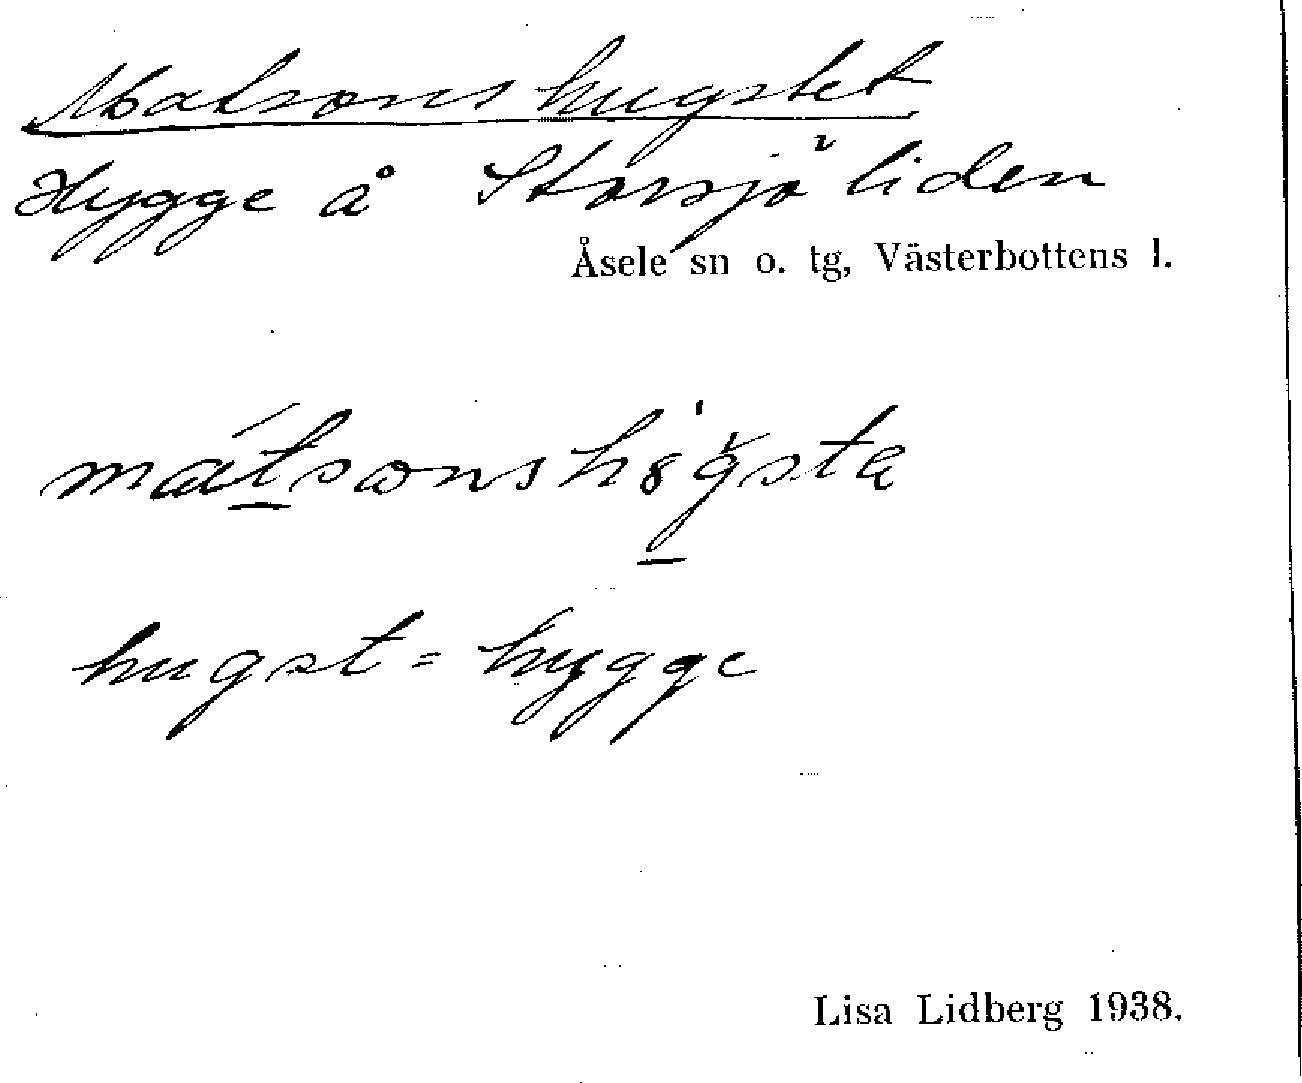 Matsonshugstet
Hygge å Storsjöliden
Åsele sn o. tg, Västerbottens l.
hugst = hygge
Lisa Lidberg 1938.